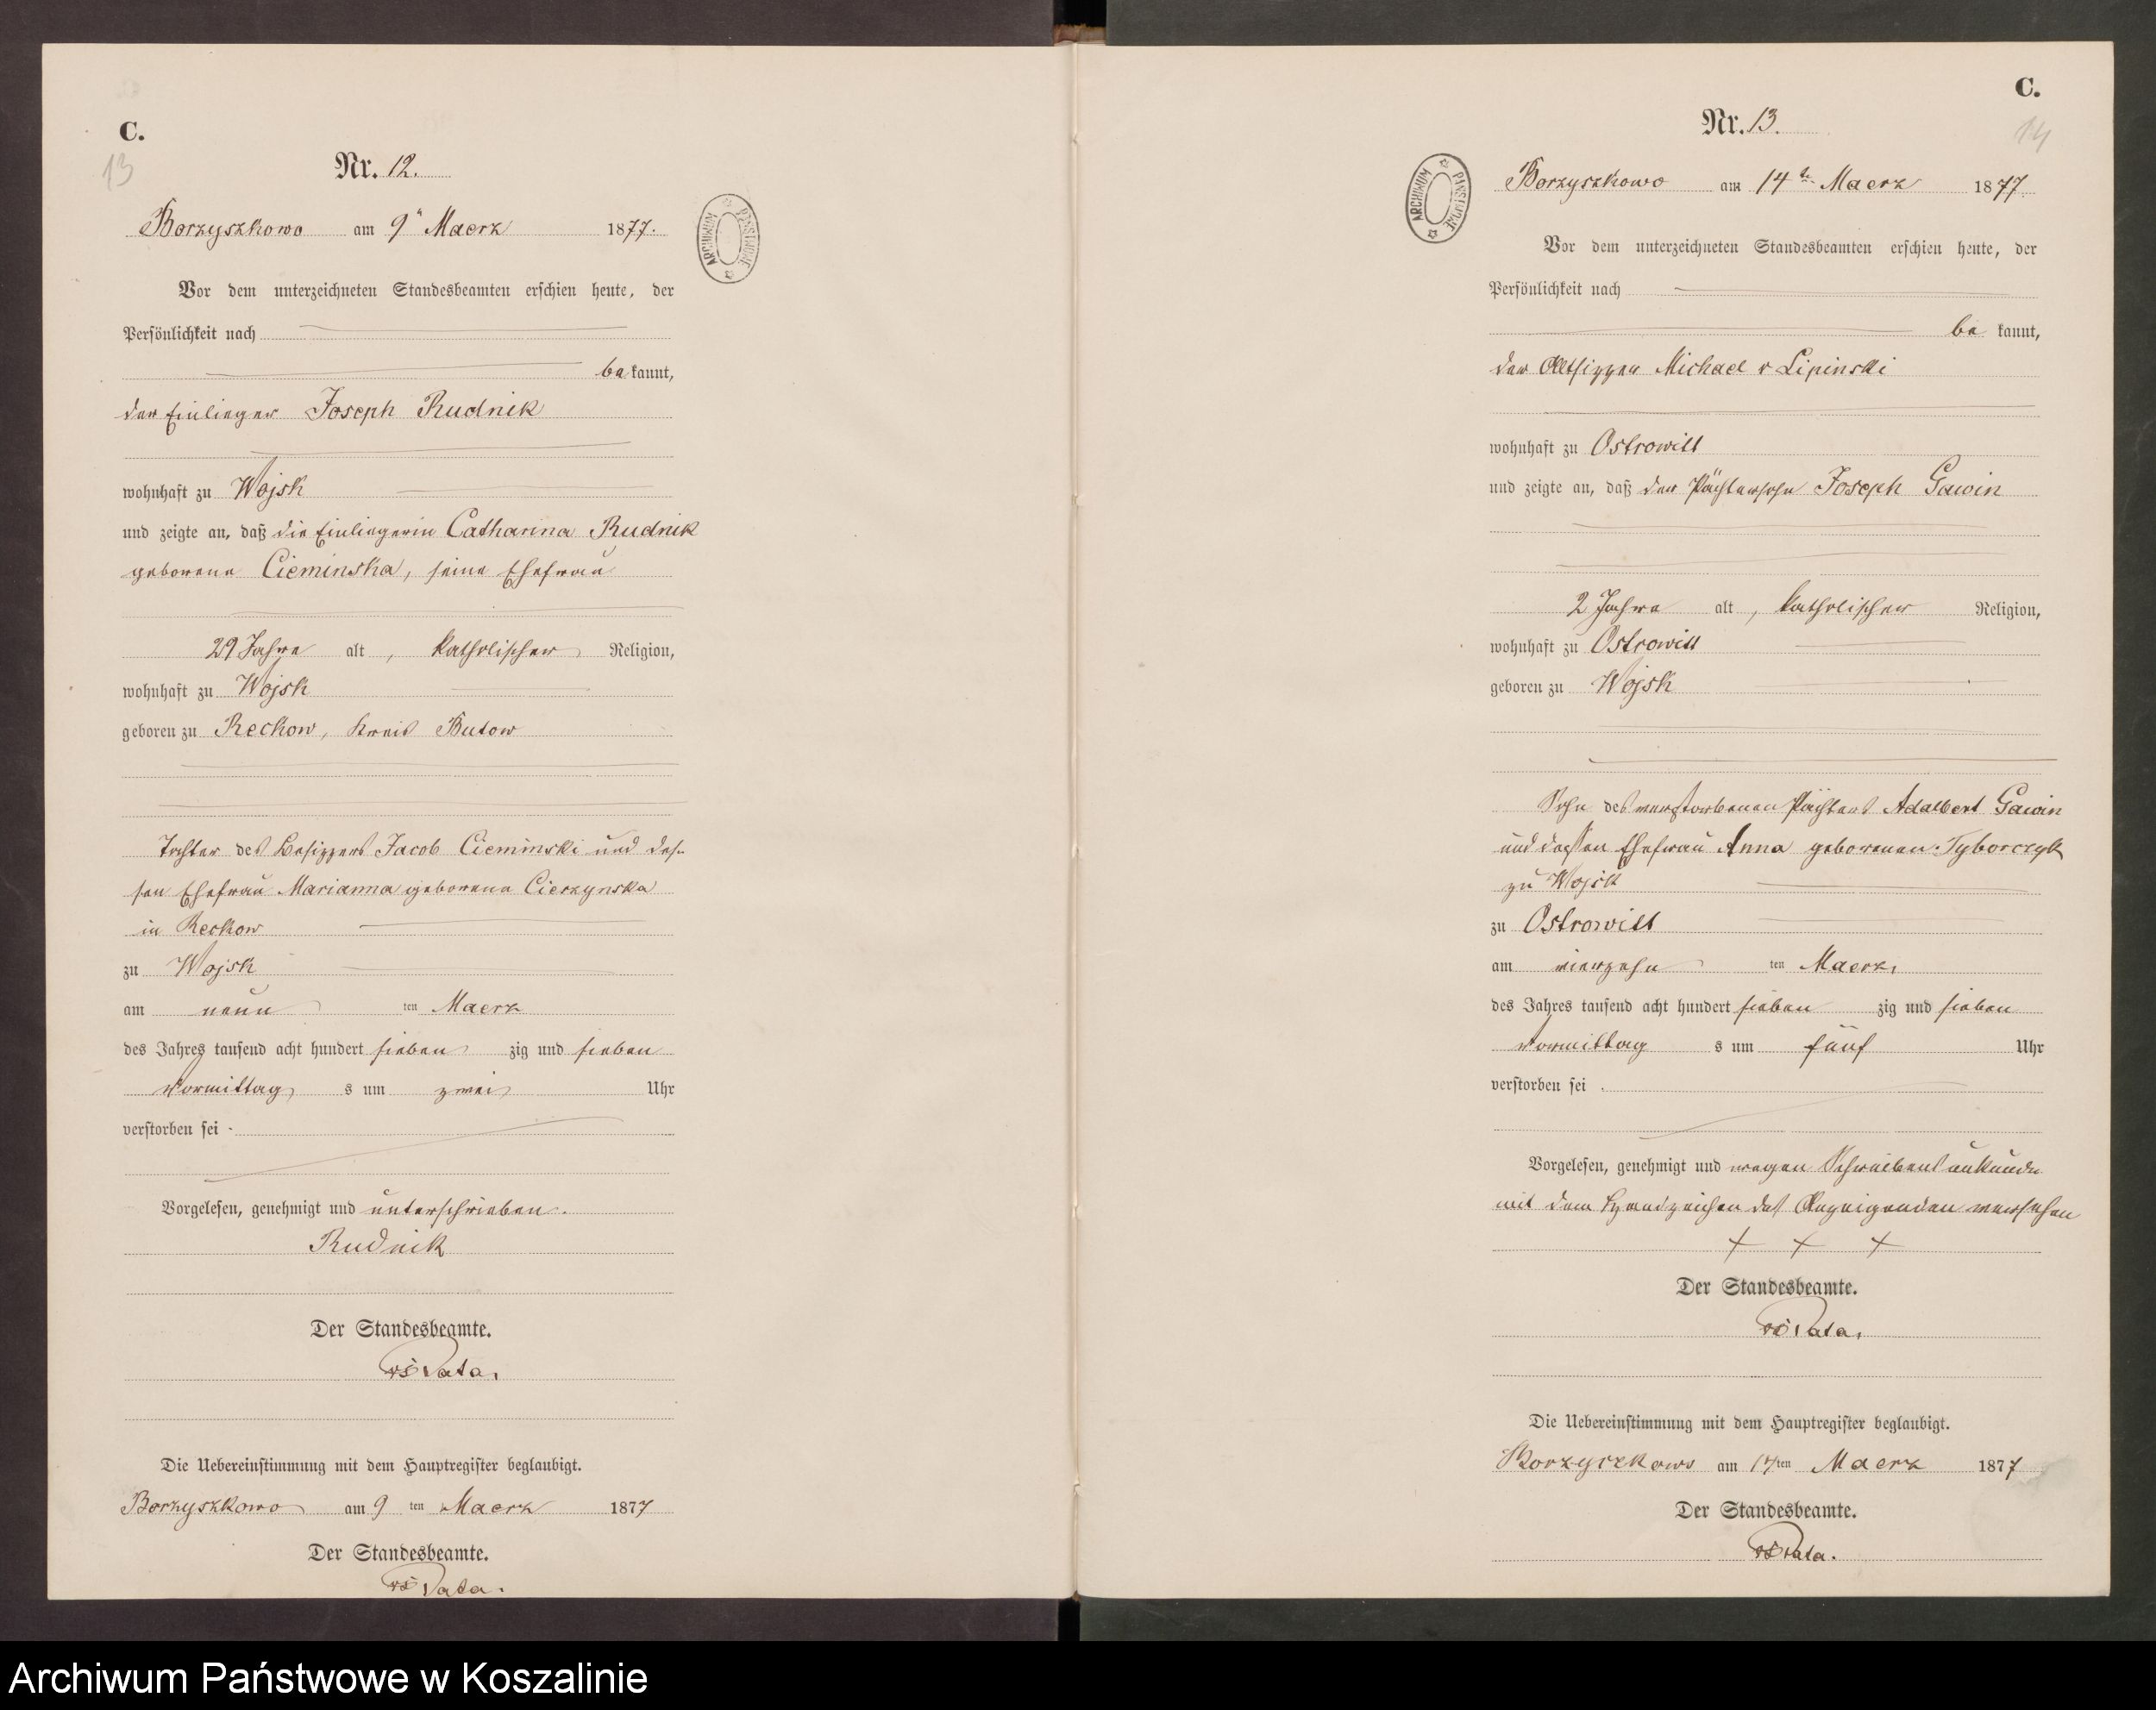 C.
13
Nr. 12.
Borzyszkowo am 9ᵗ Maerz 1877.
ARCHIWUM PAŃSTWOWE
Vor dem unterzeichneten Standesbeamten erschien heute, der
Persönlichkeit nach
be kannt,
der Einlieger Joseph Rudnik
wohnhaft zu Wojsk
und zeigte an, daß die Einliegerin Catharina Rudnik
geborene Cieminska, seine Ehefrau
29 Jahre alt, katholischer Religion,
wohnhaft zu Wojsk
geboren zu Reckow, Kreis Butow
Tochter des Besitzers Jacob Cieminski und des-
sen Ehefrau Marianna geborene Cierzynska
in Reckow
zu Wojsk
am neun ten Maerz
des Jahres tausend acht hundert sieben zig und sieben
Vormittag s um zwei Uhr
verstorben sei.
Vorgelesen, genehmigt und unterschrieben.
Rudnik
Der Standesbeamte.
Die Uebereinstimmung mit dem Hauptregister beglaubigt.
Borzyszkowo am 9 ten Maerz 1877
Der Standesbeamte.
C.
14
Nr. 13.
Borzyszkowo am 14 te Maerz 1877.
ARCHIWUM PAŃSTWOWE
Vor dem unterzeichneten Standesbeamten erschien heute, der
Persönlichkeit nach
be kannt,
der Altsitzer Michael v Lipinski
wohnhaft zu Ostrowitt
und zeigte an, daß der Pächtersohn Joseph Gawin
2 Jahre alt, katholischer Religion,
wohnhaft zu Ostrowitt
geboren zu Wojsk
Sohn des verstorbenen Pächters Adalbert Gawin
und dessen Ehefrau Anna geborenen Tyborczyk
zu Wojsk
zu Ostrowitt
am vierzehn ten Maerz,
des Jahres tausend acht hundert sieben zig und sieben
Vormittag s um fünf Uhr
verstorben sei.
Vorgelesen, genehmigt und wegen Schreibensunkunde
mit dem Handzeichen des Anzeigenden versehen
+ + +
Der Standesbeamte.
Die Uebereinstimmung mit dem Hauptregister beglaubigt.
Borzyszkowo am 14 ten Maerz 1877
Der Standesbeamte.
Archiwum Państwowe w Koszalinie